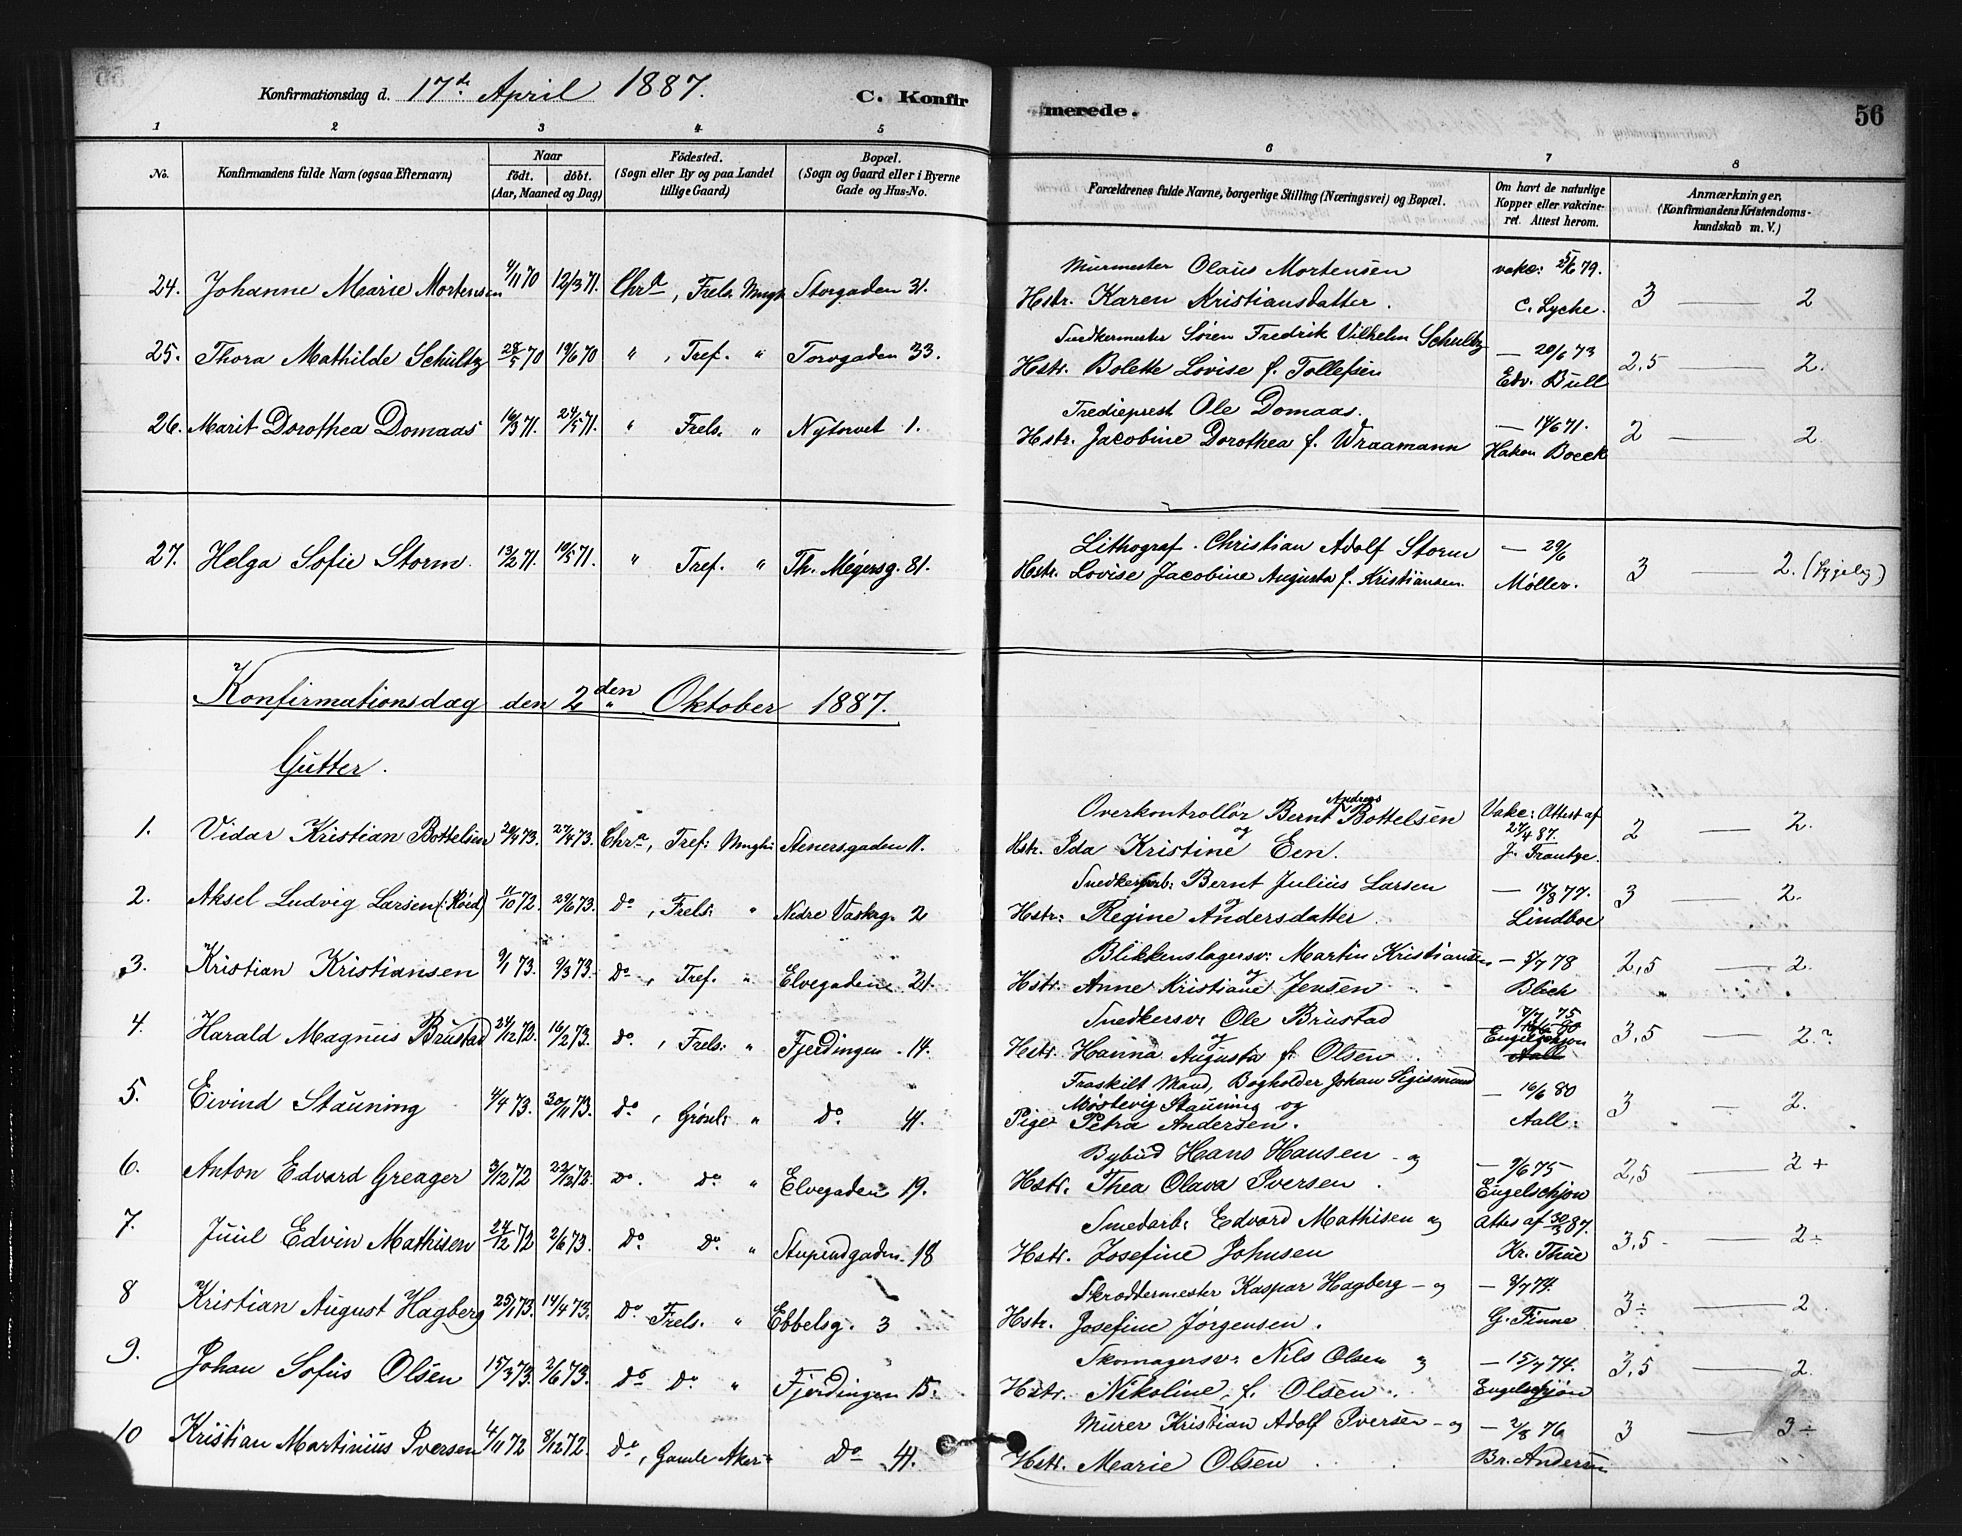 Konfirmationsdag d. 17de April 1887. C. Konfirmerede. 56
1 2 3 4 5 6 7 8
No. Konfirmandens fulde Navn (ogsaa Efternavn) Naar födt. döbt. (Aar, Maaned og Dag) Födested. (Sogn eller By og paa Landet tillige Gaard) Bopæl. (Sogn og Gaard eller i Byerne Gade og Hus-No. Forældrenes fulde Navne, borgerlige Stilling (Næringsvei) og Bopæl. Om havt de naturlige Kopper eller vakcineret. Attest herom. Anmærkninger. (Konfirmandens Kristendomskundskab m. V.)
Murmester Olaus Mortensen vakc: 25/6 79.
24. Johanne Marie Mortensen 4/11 70 12/3 71. Chra, Frels. Mngh. Storgaden 31. Hstr. Karen Kristiansdatter. C. Lyche. 3 — 2
Snedkermester Sören Fredrik Vilhelm Schultz — 20/6 73
25. Thora Mathilde Schultz 28/5 70 19/6 70 " , Tref. " Torvgaden 33. Hstr. Bolette Lovise f. Tollefsen Edv. Bull 2,5 — 2.
Trediepræst Ole Domaas. — 14/6 71.
26. Marit Dorothea Domaas 16/3 71. 24/5 71. " Frels. " Nytorvet 1. Hstr. Jacobine Dorothea f. Wraamann Hakon Boeck 2 — 2.
Lithograf. Christian Adolf Storm — 29/6
27. Helga Sofie Storm. 13/2 71. 10/5 71. " Tref. " Th. Meyersg. 81. Hstr. Lovise Jacobine Augusta f. Kristiansen. Møller. 3 — 2. (sygelig)
Konfirmationsdag den 2den Oktober 1887.
Gutter.
Overkontrollør Bernt Andreas Bottelsen og Vakc: Attest af 27/4 87.
1. Vidar Kristian Bottelsen 20/4 73. 27/4 73. Chra, Tref: Mngh: Stenersgaden 11. Hstr. Ida Kristine Een. J. Frantze. 2 — 2.
Snedkerarb: Bernt Julius Larsen og — 15/8 77.
2. Aksel Ludvig Larsen (: Röid) 11/10 72. 29/6 73. Do, Frels: " Nedre Vaskeg. 2 Hstr: Regine Andersdatter. Lindboe 3 — 2.
Blikkenslagersv: Martin Kristiansen og — 5/7 78
3. Kristian Kristiansen 9/1 73. 9/3 73. Do, Tref. " Elvegaden 21. Hstr. Anne Kristiane Jensen Blich 2,5 — 2.
Snedkersv: Ole Brustad og 7/7 75
4. Harald Magnus Brustad 24/12 72. 16/2 73. Do, Frels: " Fjerdingen 14. Hstr. Hanna Augusta f. Olsen. Engelschjøn Aall 3,5 — 2.?
Fraskilt Mand, Bogholder Johan Sigismund — 16/6 80
5. Eivind Stauning 4/4 73. 30/11 73. Do, Grönl: " Do. 41. Stauning og Pige Petra Andersen. Aall. 3 — 2.
Bybud Hans Hansen og — 9/6 75
6. Anton Edvard Greager 3/12 72 22/12 72. Do. Do. " Elvegaden 19. Hstr. Thea Olava Iversen. Engelschjøn 2,5 — 2 +
Smedarb: Edvard Mathisen og Attes af 30/3 87.
7. Juul Edvin Mathisen 24/12 72 2/6 73. Do. Do. " Stupendgaden 18 Hstr. Josefine Johnsen Kr. Thue 3,5 — 2 ÷
Skroddermester Kaspar Hagberg — og — 8/7 74.
8 Kristian August Hagberg 25/1 73. 14/4 73. Do Frels. " Ebbelsg. 3 Hstr. Josefine Jørgensen. G. Finne 3 ÷ — 2.
Skomagersv: Nils Olsen og — 15/7 74.
9. Johan Sofus Olsen 15/3 73. 2/6 73. Do Do. " Fjerdingen 15. Hstr. Nikoline, f. Olsen. Engelschjøn 3,5 — 2.
Murer Kristian Adolf Iversen — og — 2/8 76
10 Kristian Martinius Iversen 4/11 72 8/12 72. Do, Gamle Aker: Do 41. Hstr. Marie Olsen Br. Andersen 3 — 3 ÷